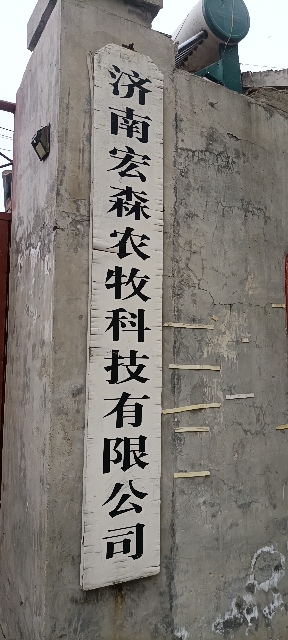 济南宏森农牧科技有限公司